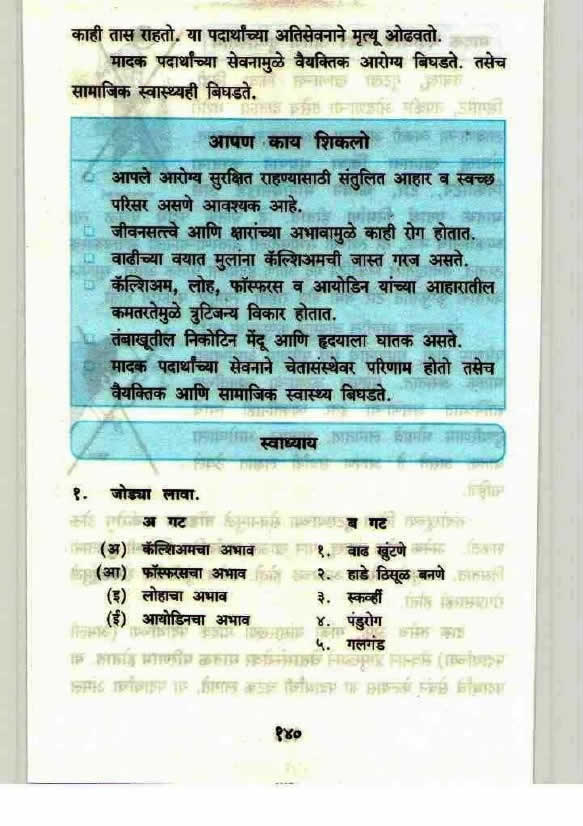 काही तास राहतो. या पदार्थांच्या अतिसेवनाने मृत्यू ओढवतो.
मादक पदार्थांच्या सेवनामुळे वैयक्तिक आरोग्य बिघडते. तसेच
सामाजिक स्वास्थ्यही बिघडते.
आपण काय शिकलो
आपले आरोग्य सुरक्षित राहण्यासाठी संतुलित आहार व स्वच्छ
परिसर असणे आवश्यक आहे.
जीवनसत्त्वे आणि क्षारांच्या अभावामुळे काही रोग होतात.
वाढीच्या वयात मुलांना कॅल्शिअमची जास्त गरज असते.
कॅल्शिअम, लोह, फॉस्फरस व आयोडिन यांच्या आहारातील
कमतरतेमुळे त्रुटिजन्य विकार होतात.
तंबाखूतील निकोटिन मेंदू आणि हृदयाला घातक असते.
मादक पदार्थांच्या सेवनाने चेतासंस्थेवर परिणाम होतो तसेच
वैयक्तिक आणि सामाजिक स्वास्थ्य बिघडते.
स्वाध्याय
१. जोड्या लावा.
अ गट ब गट
(अ) कॅल्शिअमचा अभाव १. वाढ खुंटणे
(आ) फॉस्फरसचा अभाव २. हाडे ठिसूळ बनणे
(इ) लोहाचा अभाव ३. स्कर्व्ही
(ई) आयोडिनचा अभाव ४. पंडुरोग
५. गलगंड
१४०